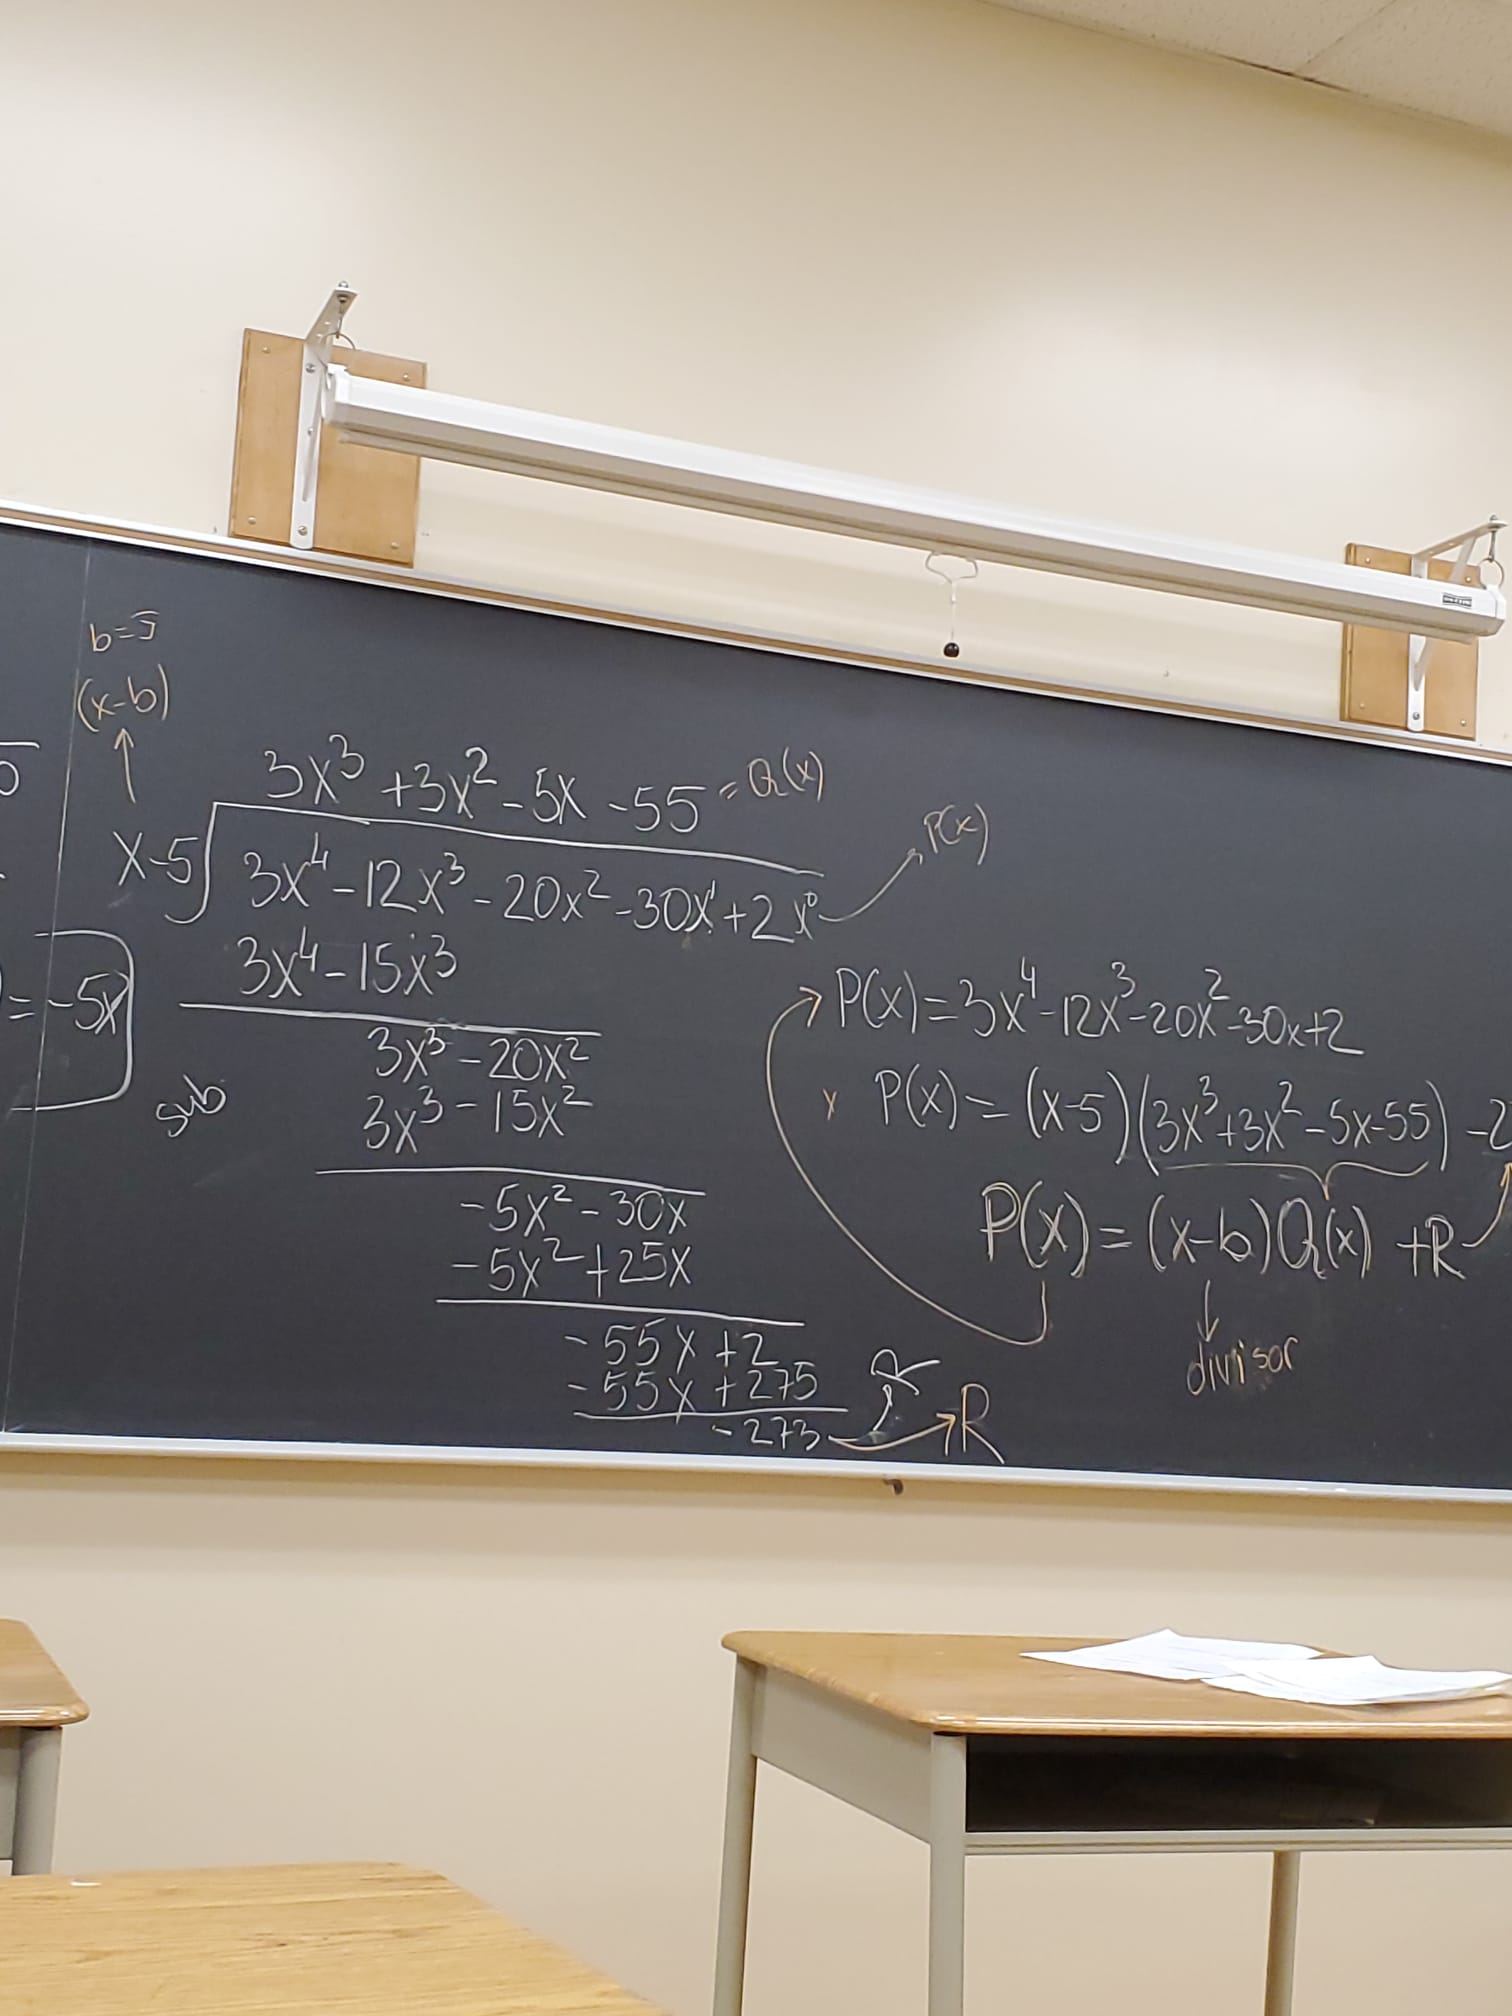 b=5
(x-b)
3x³ +3x² -5x -55 = Q(x)
P(x)
x-5 3x⁴ -12x³ -20x² -30x¹ +2x⁰
3x⁴ -15x³
= -5x
3x³ -20x²
sub
3x³ -15x²
-5x² -30x
-5x² +25x
-55x +2
-55x +275
-273
R
R
P(x) = 3x⁴ -12x³ -20x² -30x +2
x P(x) = (x-5)(3x³ +3x² -5x -55) -2
P(x) = (x-b)Q(x) +R
divisor